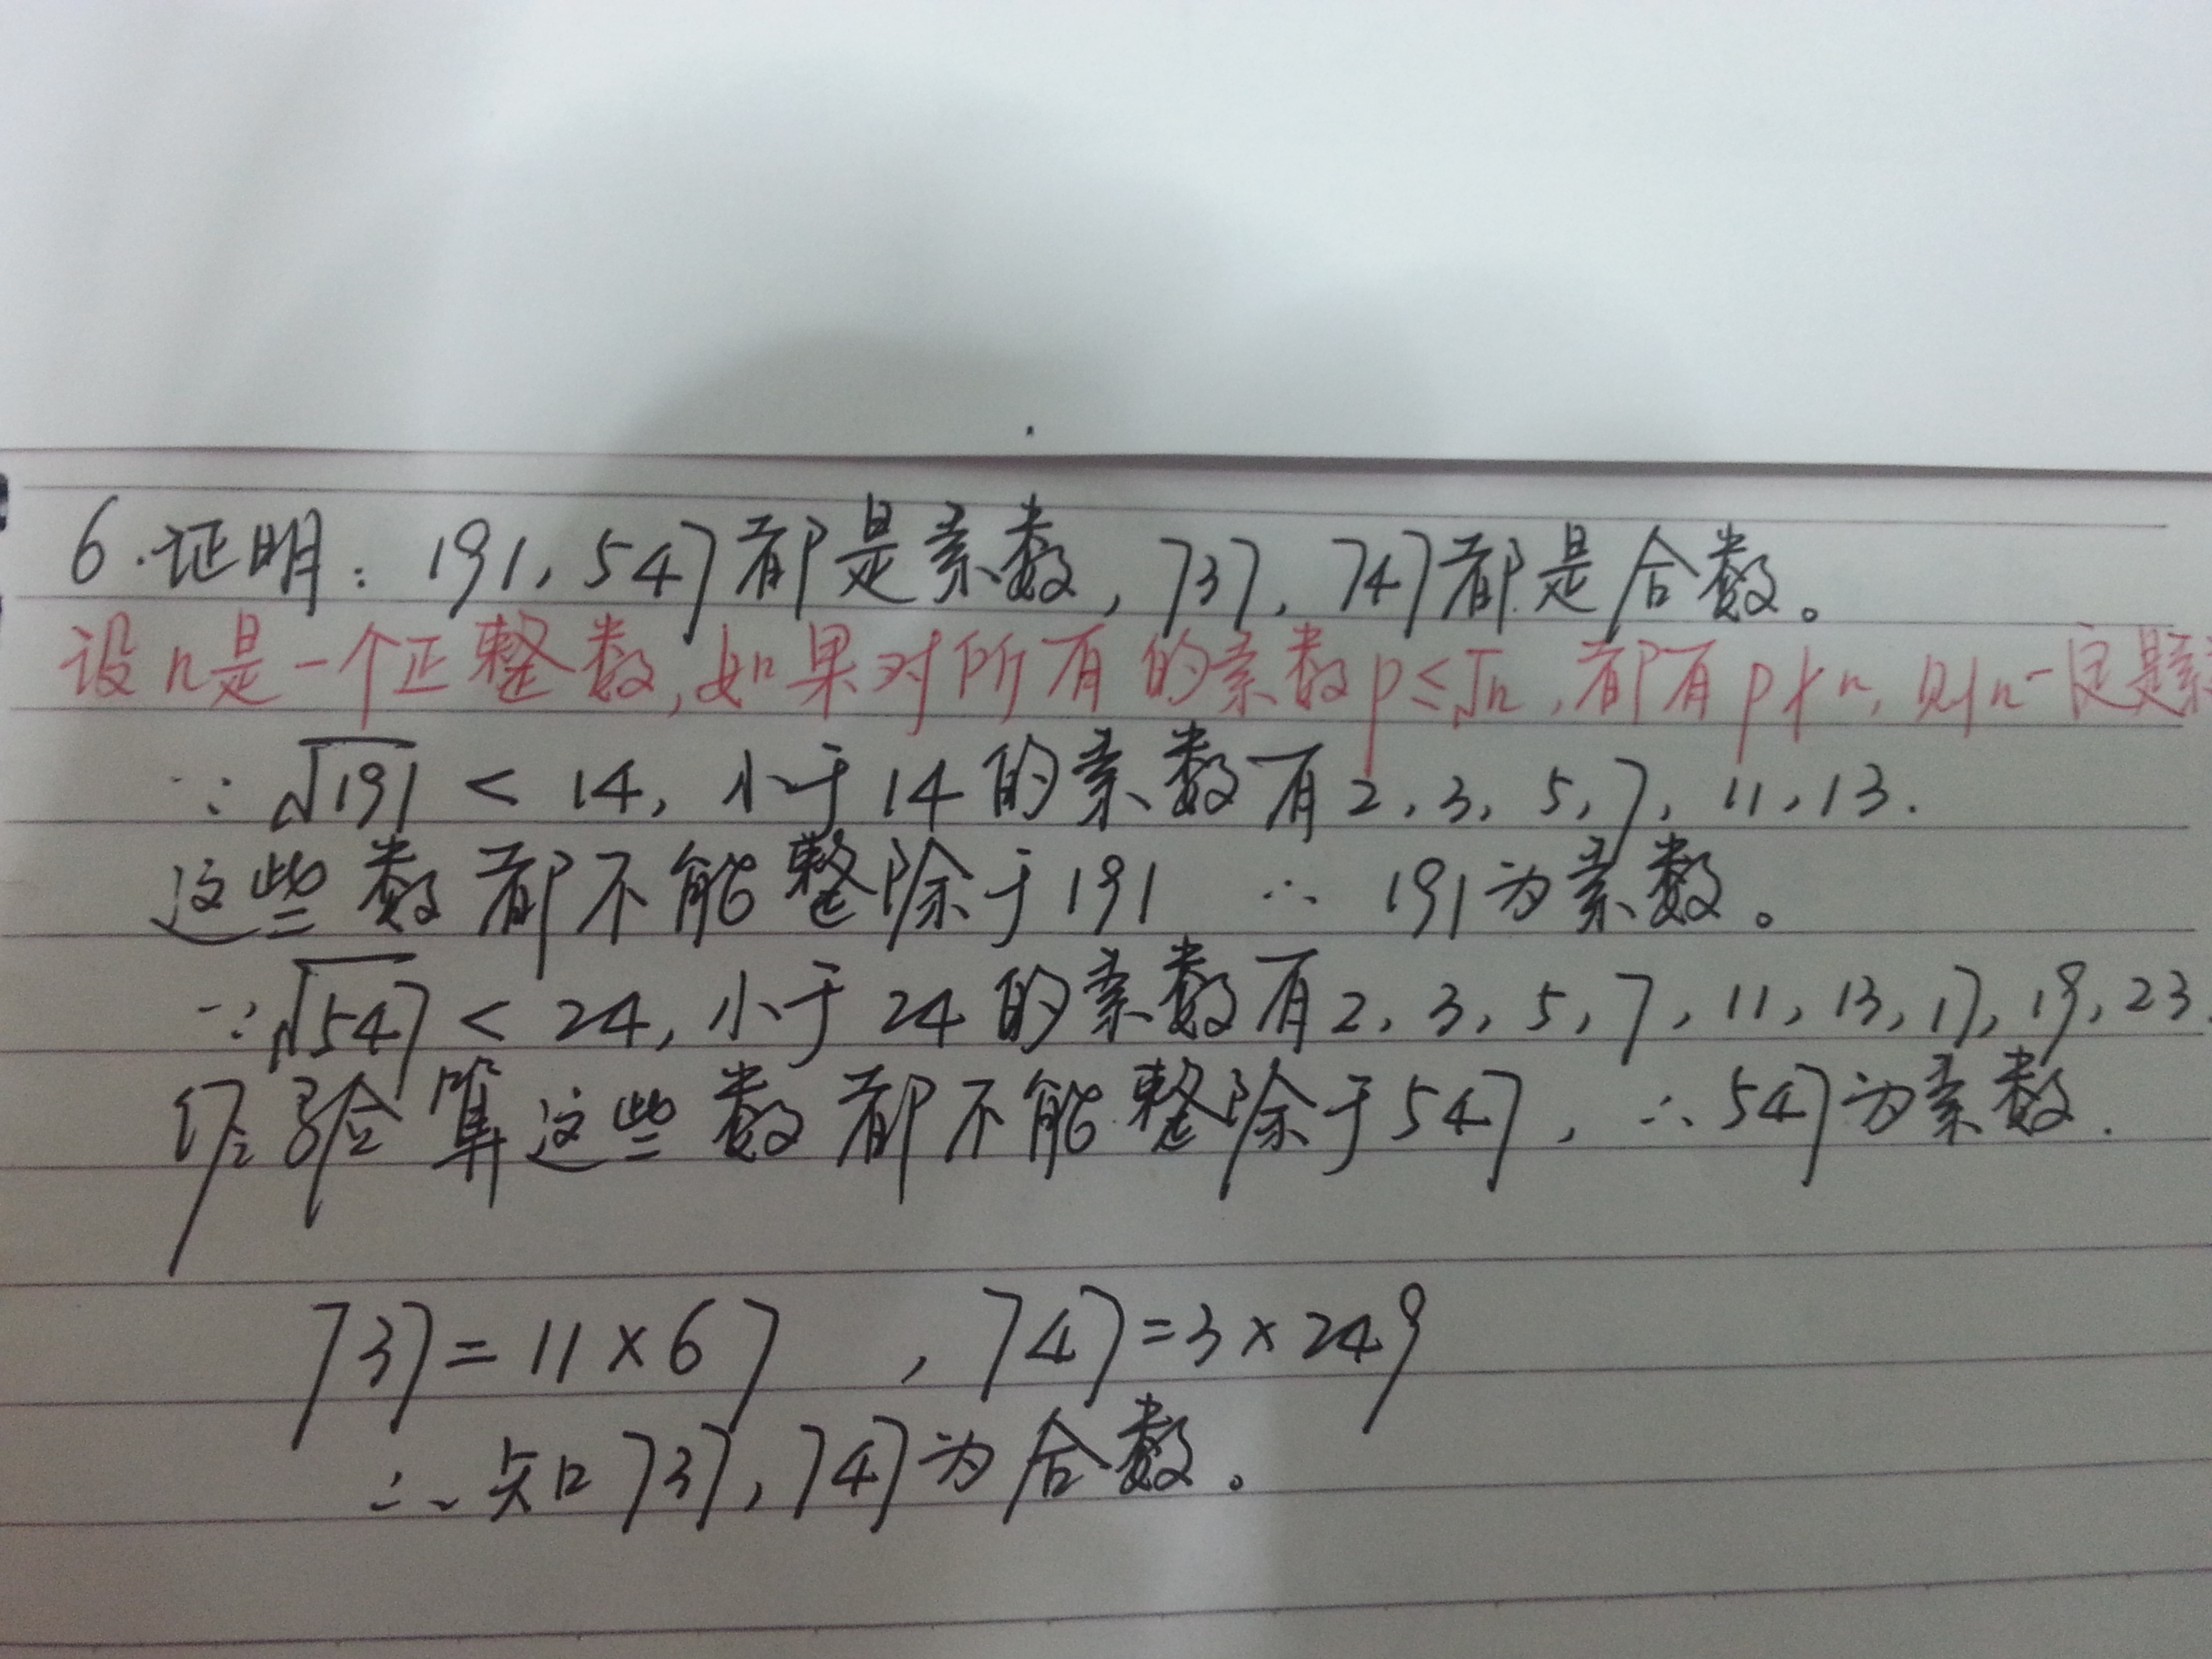 6.证明：191,547都是素数,737,747都是合数。
设n是一个正整数,如果对所有的素数p≤√n,都有p∤n,则n一定是素
∵√191<14,小于14的素数有2,3,5,7,11,13.
这些数都不能整除于191 ∴191为素数。
∵√547<24,小于24的素数有2,3,5,7,11,13,17,19,23.
经验算这些数都不能整除于547,∴547为素数.
737=11×67 ,747=3×249
∴知737,747为合数。